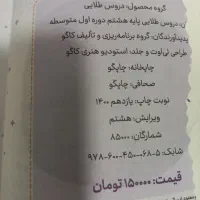 گروه محصول: دروس طلایی
دروس طلایی پایه هشتم دوره اول متوسطه
پدیدآورندگان: گروه برنامه‌ریزی و تألیف کاگو
طراحی نی‌اوت و جلد: استودیو هنری کاگو
چاپخانه: چاپگو
صحافی: چاپگو
نوبت چاپ: یازدهم ۱۴۰۰
ویرایش: هشتم
شمارگان: ۸۵۰۰۰
شابک: ۵-۰۶۸-۴۵۰-۶۰۰-۹۷۸
قیمت: ۱۵۰۰۰۰ تومان